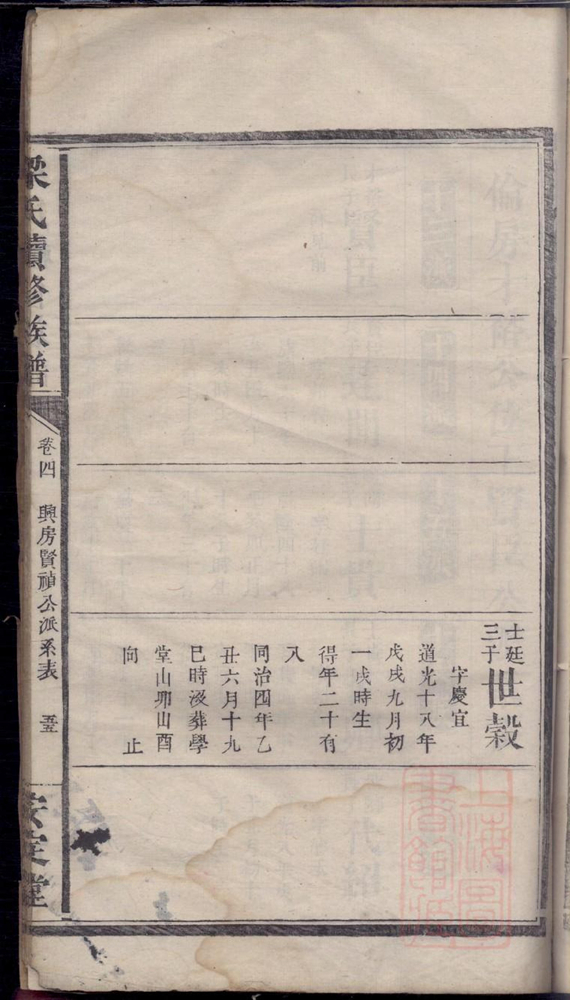 士廷
三子
世穀
字慶宜
道光十八年
戊戌九月初
一戌時生
得年二十有
八
同治四年乙
丑六月十九
巳時沒葬學
堂山卯山酉
向 止
梁氏續修族譜
卷四 興房賢禎公派系表 五
安定堂
上海圖
書館藏